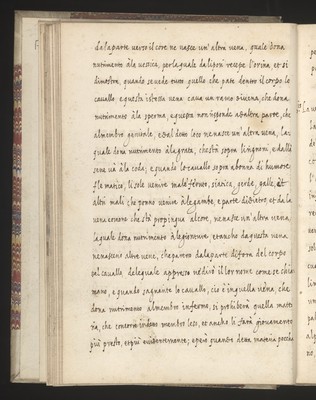 dalaparte verso il core ne nasce un'altra uena, quale dona
nutrimento ala uessica, per laquale dali poni recepe l'orina et si
dimostra, quando seuede tutto quello che pate dentro il corpo lo
cauallo e questa istessa uena caua un ramo diuena, che dona
nutrimento ala sperma, e questa non risponde ad altra parte, che
almembro genitale, et dal dom loco ne nasce un'altra uena, la
quale dona nutrimento ala grata, che stà sopra li rignoni, e dallà
sene uà ala coda; e quando lo cauallo sopra abonda di humore
fle matico, li sole uenire malo feruto, sciatica, serde, galle, et
altri mali che ponno uenire ale gambe, e parte didietro, et da la
uena comeno che stà propinqua al core, ne nasce un'altra uena,
laquale dona nutrimento ale, et anche da questa uena
ne nasceno altre uene, che pareno dala parte di fora del corpo
del cauallo, dele quale appresso ne dirò il lor nome come se chia
mano, e quando sagnante lo cauallo, ciò è in quella uena, che
dona nutrimento al membro infermo, si prohiberà quella mate
ria, che concorre in deno membro leso, et anche li farà giouamento
più presto, et più euidentemente; e però quando dena materia peccha